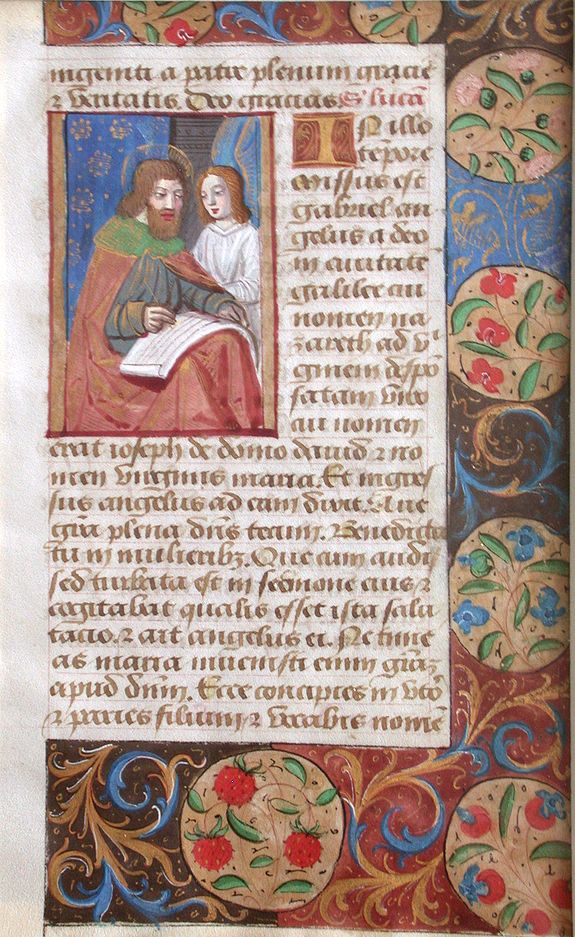 nigeniti a patre plenum gracie
⁊ veritatis. Deo gracias. S. lucā
IN illo
tēpore
missus est
gabriel an
gelus a deo
in ciuitate
galilee cui
nomen na
zareth ad vi
ginem despō
satam viro
cui nomen
erat ioseph de domo dauid ⁊ no
men virginis maria. Et ingres
sus angelus ad eam dixit. Aue
grā plena dn̄s tecum. Benedicta
tu in mulieribꝫ. Que cum audis
sed turbata est in sermone eius ⁊
cogitabat qualis esset ista salu
tacio. ⁊ ait angelus ei. Ne time
as maria inuenisti enim grāꝫ
apud dn̄m. Ecce concipies in vtō
⁊ paries filium ⁊ vocabis nomē